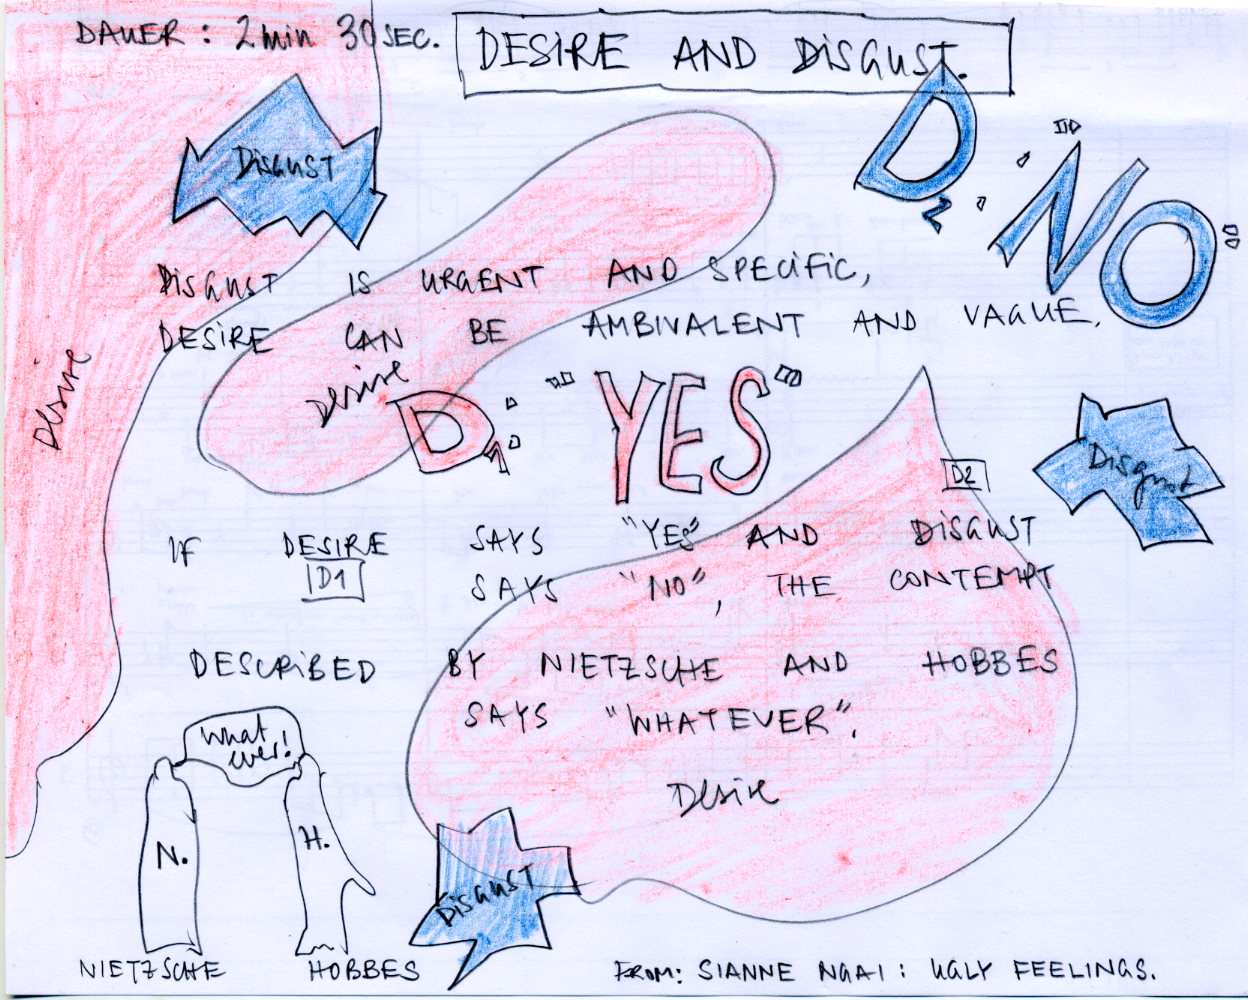 DAUER : 2 min 30 SEC.
DESIRE AND DISGUST.
DISGUST
D.
"NO"
DISGUST IS URGENT AND SPECIFIC,
DESIRE CAN BE AMBIVALENT AND VAGUE.
Desire
Desire
D
"YES"
Disgust
D2
IF DESIRE SAYS "YES" AND DISGUST
D1
SAYS "NO", THE CONTEMPT
DESCRIBED BY NIETZSCHE AND HOBBES
SAYS "WHATEVER".
What
ever!
Desire
N.
H.
DISGUST
NIETZSCHE HOBBES
FROM: SIANNE NGAI : UGLY FEELINGS.